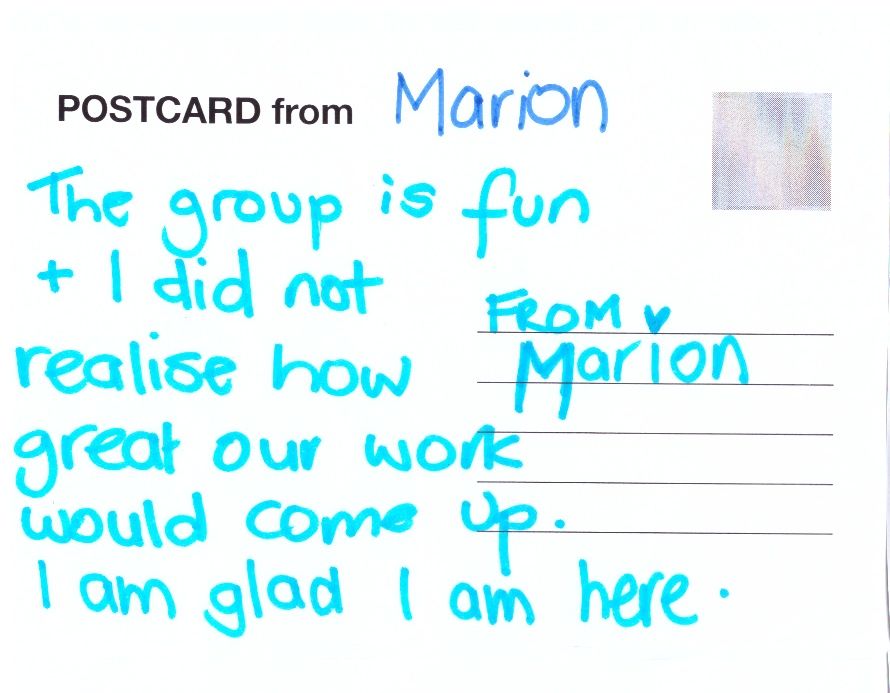 POSTCARD from Marion
The group is fun
+ I did not
realise how
great our work
would come up.
I am glad I am here.
FROM ♥
Marion